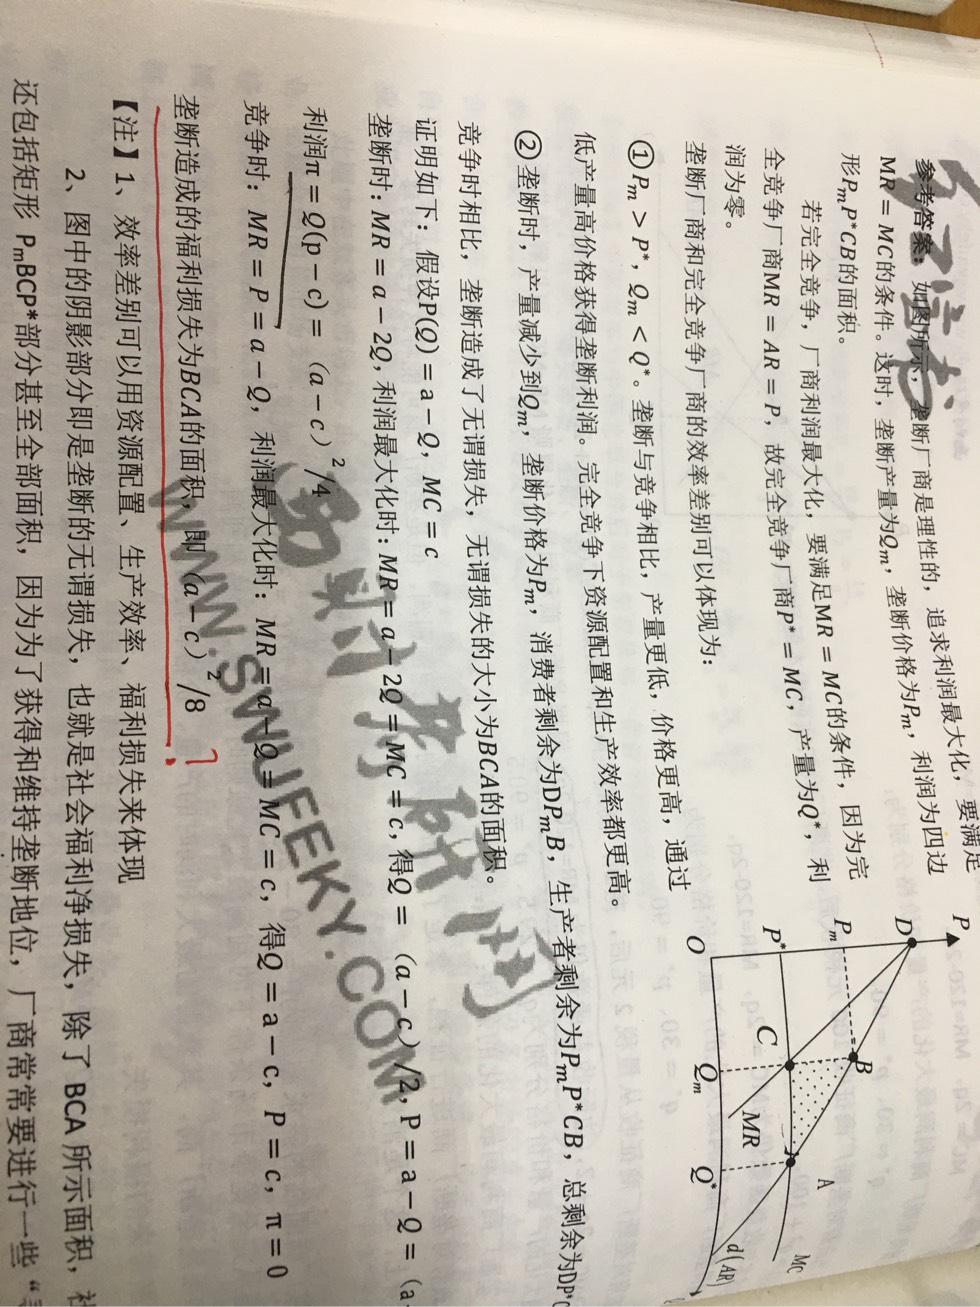 参考答案：如图所示，垄断厂商是理性的，追求利润最大化，要满足
MR = MC的条件。这时，垄断产量为Qm，垄断价格为Pm，利润为四边
形PmP*CB的面积。
若完全竞争，厂商利润最大化，要满足MR = MC的条件，因为完
全竞争厂商MR = AR = P，故完全竞争厂商P* = MC，产量为Q*，利
润为零。
垄断厂商和完全竞争厂商的效率差别可以体现为：
①Pm > P*，Qm < Q*。垄断与竞争相比，产量更低，价格更高，通过
低产量高价格获得垄断利润。完全竞争下资源配置和生产效率都更高。
②垄断时，产量减少到Qm，垄断价格为Pm，消费者剩余为DPmB，生产者剩余为PmP*CB，总剩余为DP*C
竞争时相比，垄断造成了无谓损失，无谓损失的大小为BCA的面积。
证明如下：假设P(Q) = a − Q，MC = c
垄断时：MR = a − 2Q，利润最大化时：MR = a − 2Q = MC = c，得Q = （a − c）/2，P = a − Q = （a
利润π = Q(p − c) = （a − c）²/4
竞争时：MR = P = a − Q，利润最大化时：MR = a − Q = MC = c，得Q = a − c，P = c，π = 0
垄断造成的福利损失为BCA的面积，即（a − c）²/8 ?
【注】1、效率差别可以用资源配置、生产效率、福利损失来体现
2、图中的阴影部分即是垄断的无谓损失，也就是社会福利净损失，除了 BCA 所示面积，社
还包括矩形 PmBCP*部分甚至全部面积，因为为了获得和维持垄断地位，厂商常常要进行一些“
P
D
Pm
B
P*
C
A
MC
MR
d(AR)
O
Qm
Q*
WWW.SWUFEKY.COM